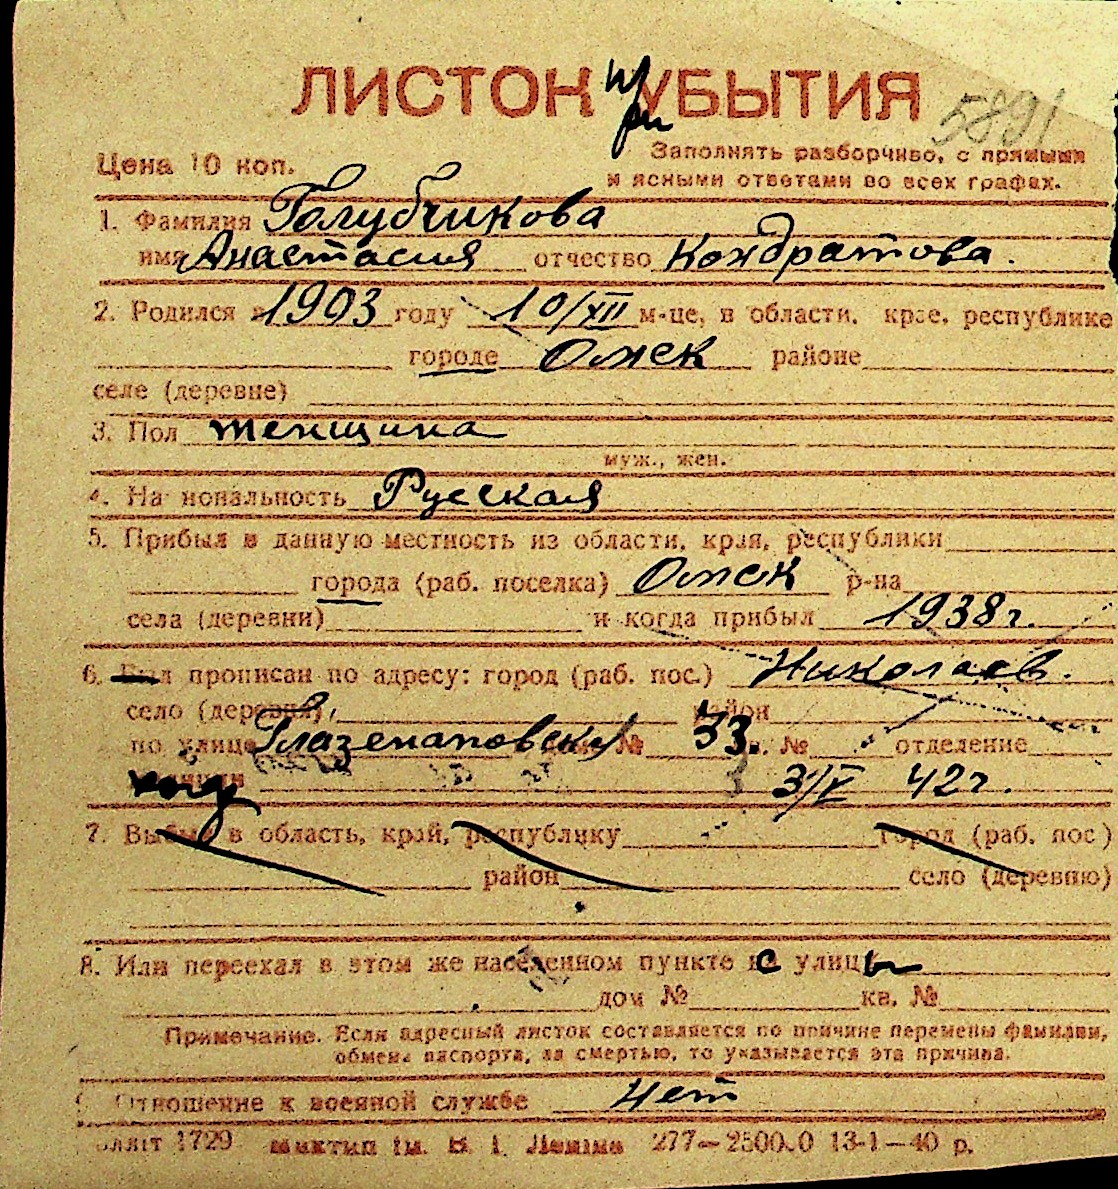 ЛИСТОК УБЫТИЯ
при
5891
Цена 10 коп.
Заполнять разборчиво, с прямыми
и ясными ответами во всех графах.
1. Фамилия Голубчикова
имя Анастасия отчество Кондратова.
2. Родился в 1903 году 10/XII м-це, в области, крае, республике
городе Омск районе
селе (деревне)
3. Пол женщина
муж., жен.
4. Национальность Русская
5. Прибыл в данную местность из области, края, республики
города (раб. поселка) Омск р-на
села (деревни) и когда прибыл 1938 г.
6. Был прописан по адресу: город (раб. пос.) Николаев.
село (деревня), район
по улице Глазенаповску № 33 кв. № отделение
милиции 3/V 42 г.
7. Выбыл в область, край, республику город (раб. пос.)
район село (деревню)
8. Или переехал в этом же населенном пункте с улицы
дом № кв. №
Примечание. Если адресный листок составляется по причине перемены фамилии,
обмена паспорта, за смертью, то указывается эта причина.
9. Отношение к военной службе Нет
1729 Ім. В. І. Леніна 277—2500.0 13-1—40 р.